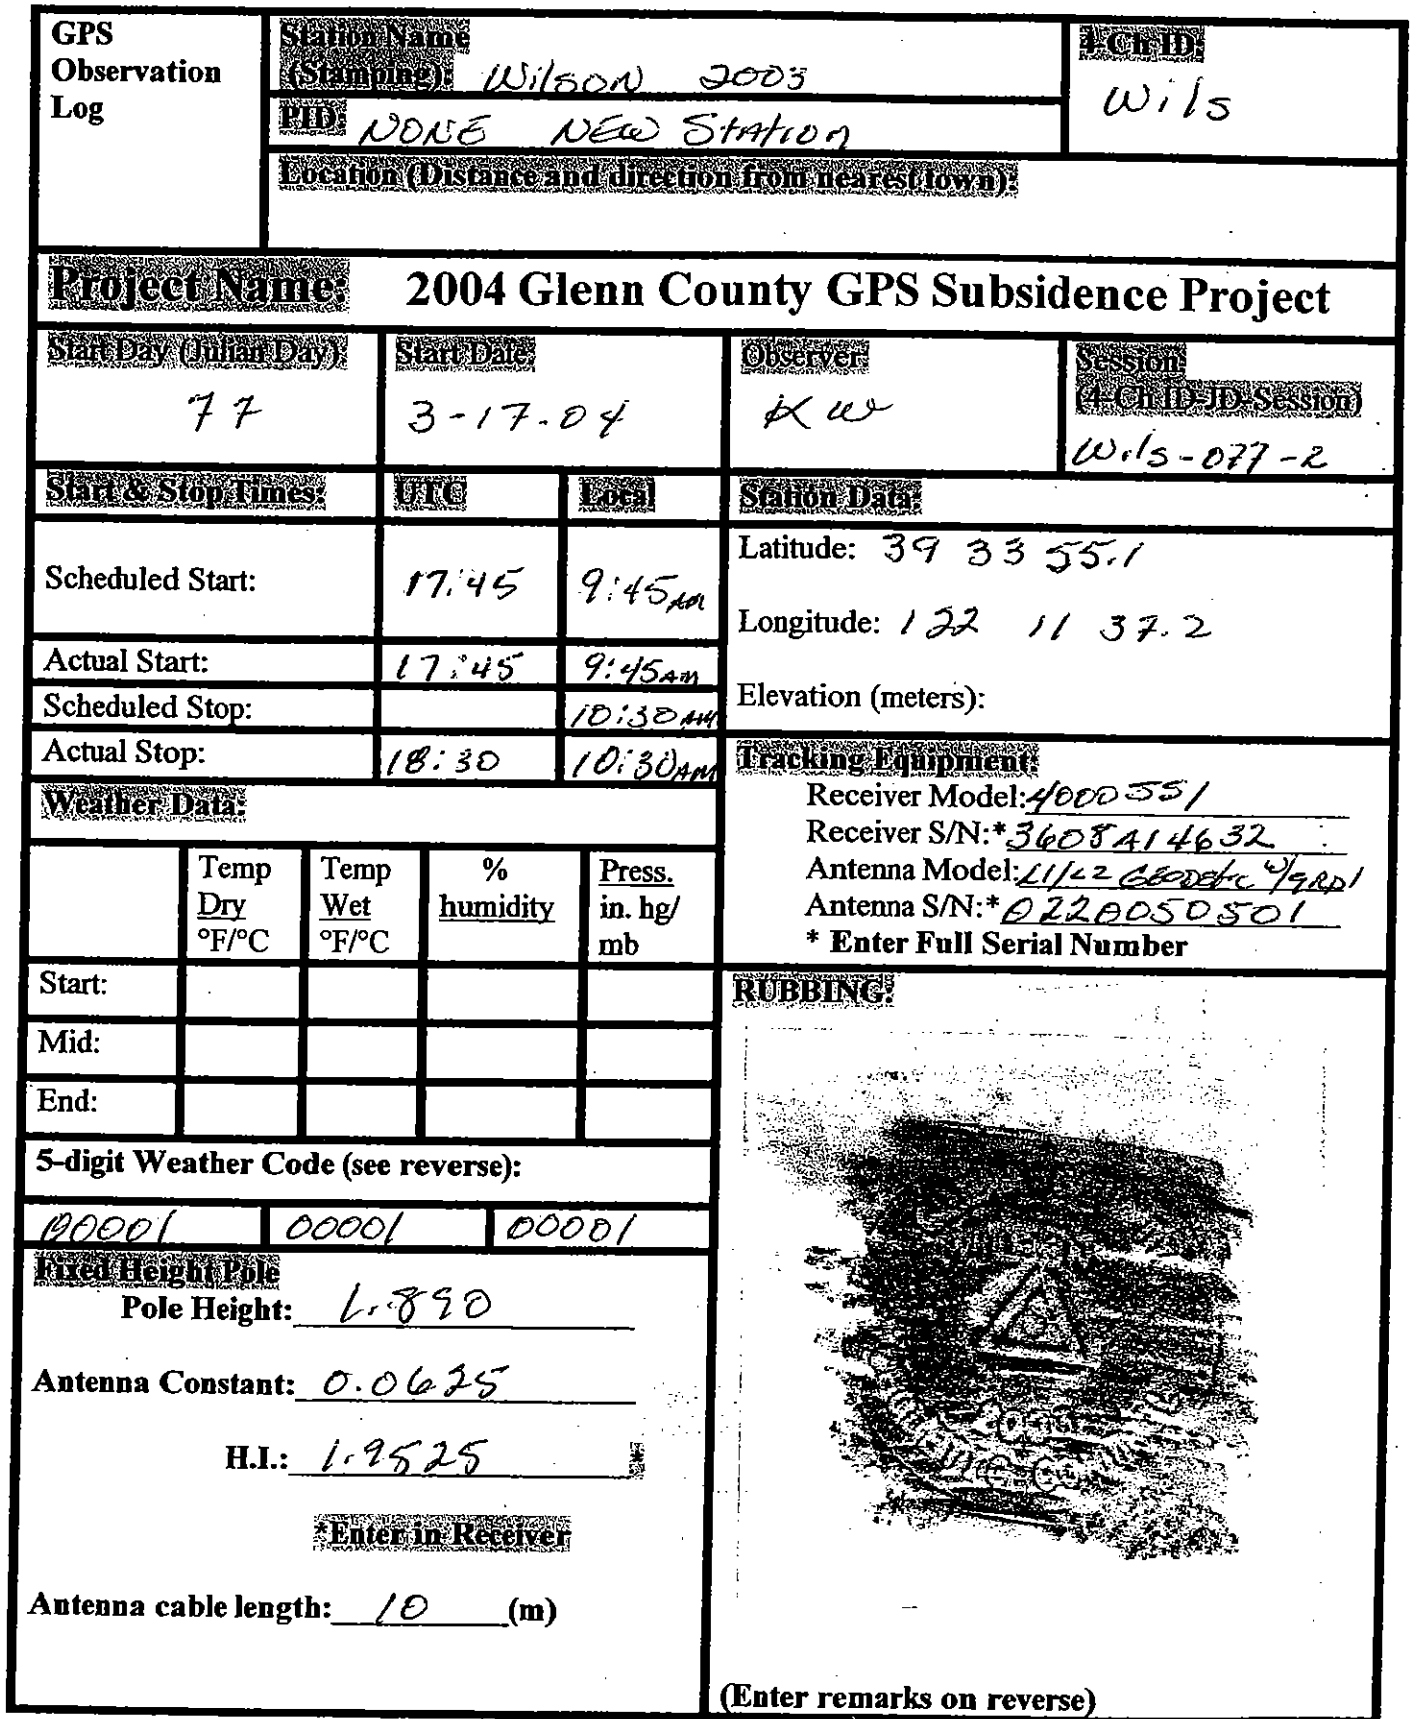 GPS
Observation
Log
Station Name
(Stamping): Wilson 2003
4-Ch ID:
Wils
PID: NONE NEW Station
Location (Distance and direction from nearest town):
Project Name: 2004 Glenn County GPS Subsidence Project
Start Day (Julian Day)
77
Start Date:
3-17-04
Observer:
KW
Session:
(4-Ch ID-JD-Session)
Wils-077-2
Start & Stop Times: UTC Local
Scheduled Start: 17:45 9:45 AM
Actual Start: 17:45 9:45 AM
Scheduled Stop: 10:30 AM
Actual Stop: 18:30 10:30 AM
Station Data:
Latitude: 39 33 55.1
Longitude: 122 11 37.2
Elevation (meters):
Tracking Equipment:
Receiver Model: 4000 SSI
Receiver S/N:* 3608A14632
Antenna Model: L1/L2 GEODETIC W/GRD
Antenna S/N:* 0220050501
* Enter Full Serial Number
Weather Data:
Temp Dry °F/°C
Temp Wet °F/°C
% humidity
Press. in. hg/ mb
Start:
Mid:
End:
5-digit Weather Code (see reverse):
00001 00001 00001
Fixed Height Pole
Pole Height: 1.890
Antenna Constant: 0.0625
H.I.: 1.9525 *
*Enter in Receiver
Antenna cable length: 10 (m)
RUBBING:
(Enter remarks on reverse)